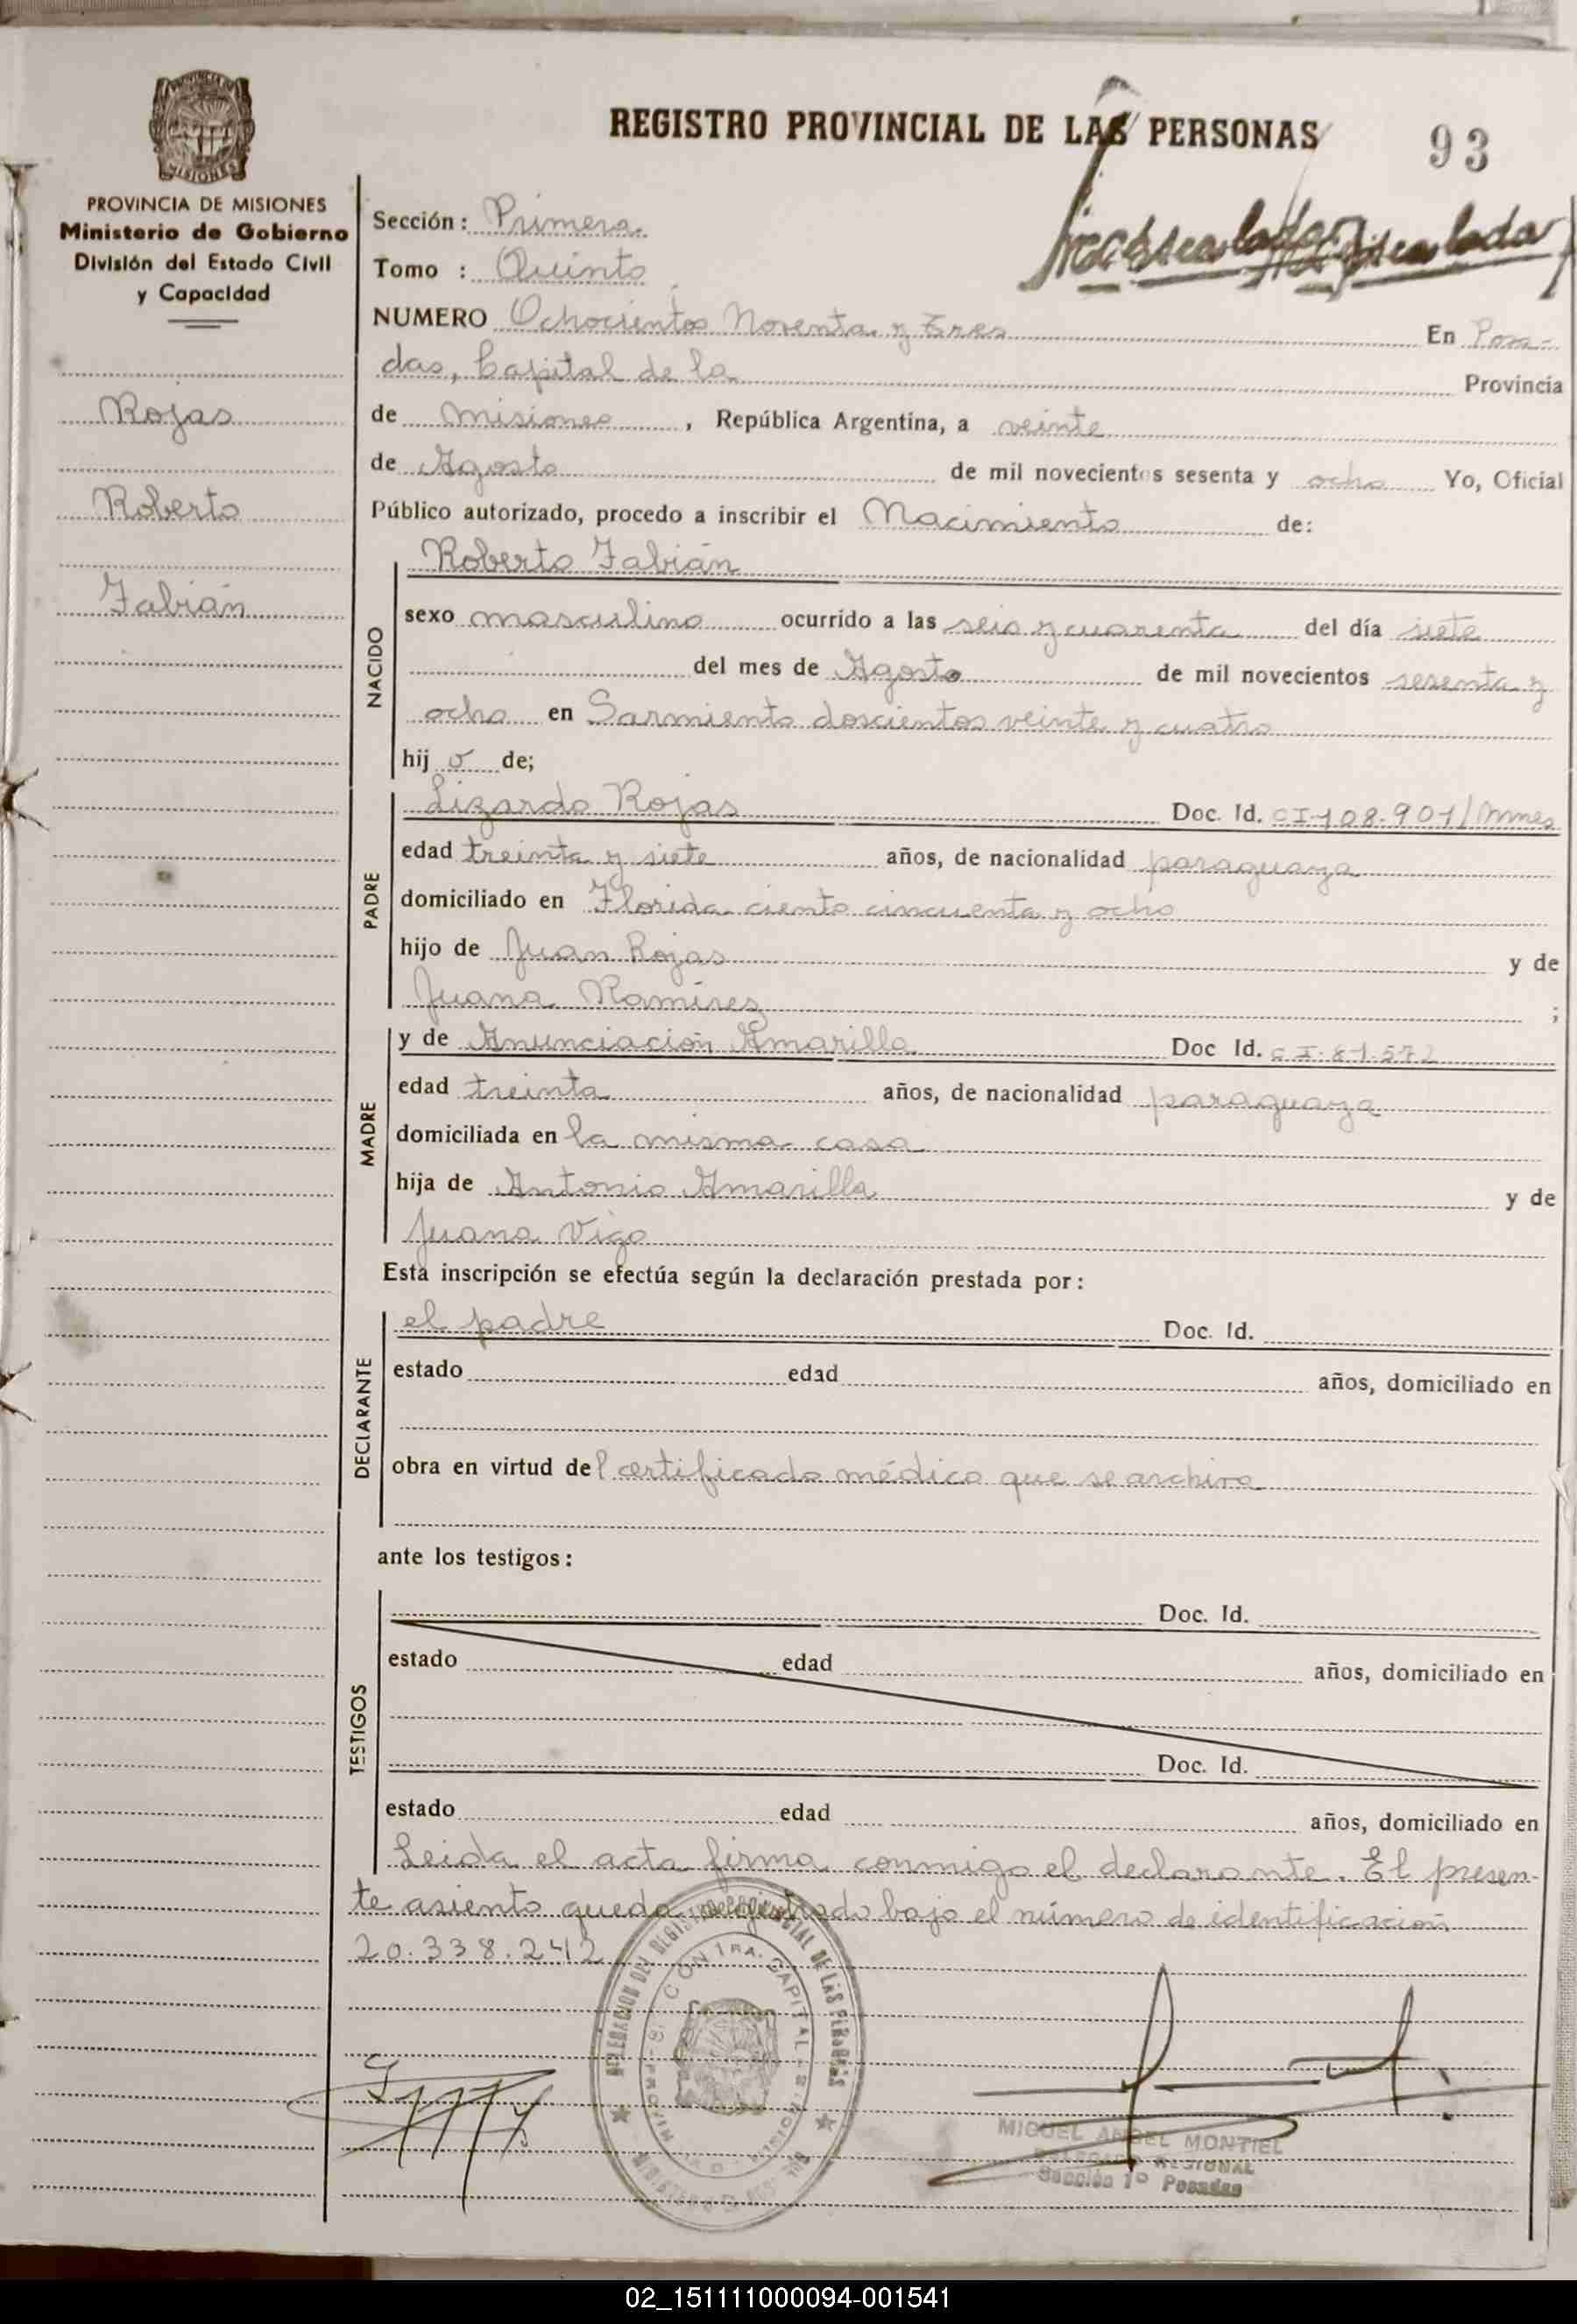 REGISTRO PROVINCIAL DE LAS PERSONAS
93
PROVINCIA DE MISIONES
Ministerio de Gobierno
División del Estado Civil
y Capacidad
Rojas
Roberto
Fabián
Sección: Primera
Tomo : Quinto
NUMERO Ochocientos Noventa y Tres En Posa-
das, Capital de la Provincia
de Misiones, República Argentina, a veinte
de Agosto de mil novecientos sesenta y ocho Yo, Oficial
Público autorizado, procedo a inscribir el Nacimiento de:
NACIDO
Roberto Fabián
sexo masculino ocurrido a las seis y cuarenta del día siete
del mes de Agosto de mil novecientos sesenta y
ocho en Sarmiento doscientos veinte y cuatro
hij o de;
PADRE
Lizardo Rojas Doc. Id. CI-108.901/Mnes
edad treinta y siete años, de nacionalidad paraguaya
domiciliado en Florida ciento cincuenta y ocho
hijo de Juan Rojas y de
Juana Ramírez ;
MADRE
y de Anunciación Amarilla Doc Id. CI-81.572
edad treinta años, de nacionalidad paraguaya
domiciliada en la misma casa
hija de Antonio Amarilla y de
Juana Vigo
Esta inscripción se efectúa según la declaración prestada por:
DECLARANTE
el padre Doc. Id.
estado edad años, domiciliado en
obra en virtud del certificado médico que se archiva
ante los testigos:
TESTIGOS
Doc. Id.
estado edad años, domiciliado en
Doc. Id.
estado edad años, domiciliado en
Leida el acta firma conmigo el declarante. El presen-
te asiento queda registrado bajo el número de identificación
20.338.242
MIGUEL ANGEL MONTIEL
REGIONAL
Sección 1º Posadas
02_151111000094-001541